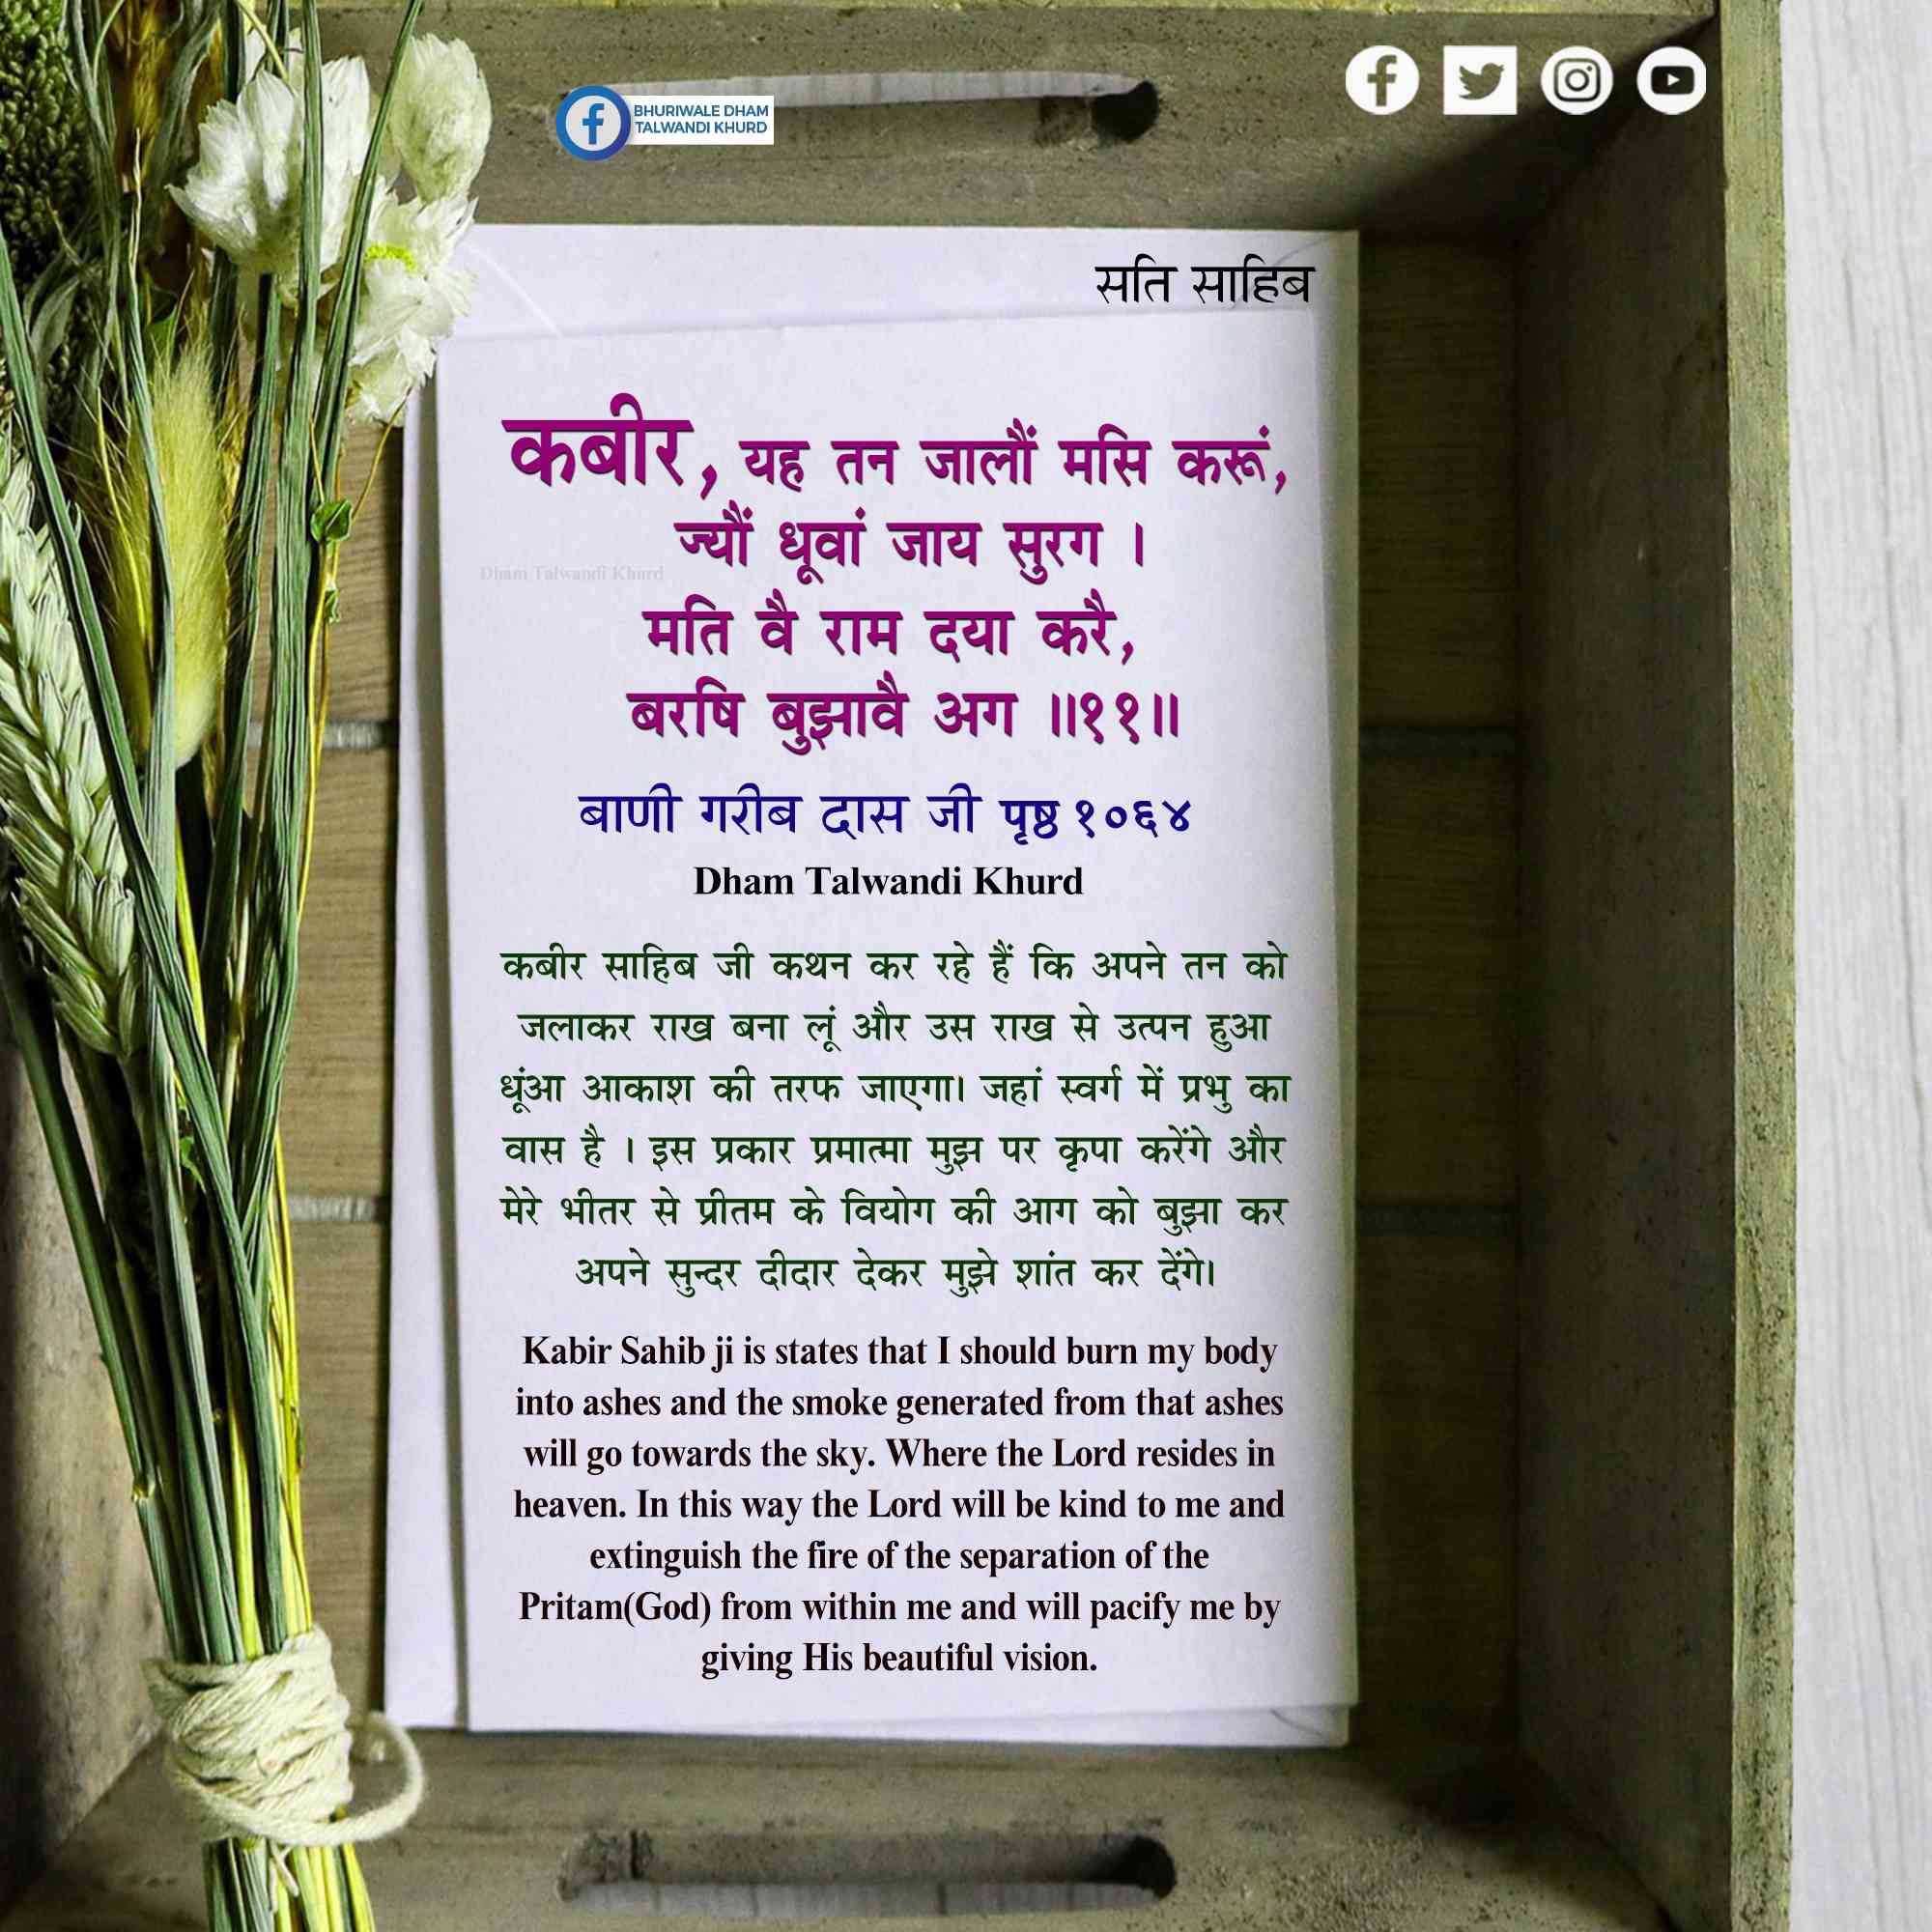 BHURIWALE DHAM
TALWANDI KHURD
सति साहिब
कबीर, यह तन जालौं मसि करूं,
ज्यौं धूवां जाय सुरग ।
Dham Talwandi Khurd
मति वै राम दया करै,
बरषि बुझावै अग ॥११॥
बाणी गरीब दास जी पृष्ठ १०६४
Dham Talwandi Khurd
कबीर साहिब जी कथन कर रहे हैं कि अपने तन को
जलाकर राख बना लूं और उस राख से उत्पन हुआ
धूंआ आकाश की तरफ जाएगा। जहां स्वर्ग में प्रभु का
वास है । इस प्रकार प्रमात्मा मुझ पर कृपा करेंगे और
मेरे भीतर से प्रीतम के वियोग की आग को बुझा कर
अपने सुन्दर दीदार देकर मुझे शांत कर देंगे।
Kabir Sahib ji is states that I should burn my body
into ashes and the smoke generated from that ashes
will go towards the sky. Where the Lord resides in
heaven. In this way the Lord will be kind to me and
extinguish the fire of the separation of the
Pritam(God) from within me and will pacify me by
giving His beautiful vision.